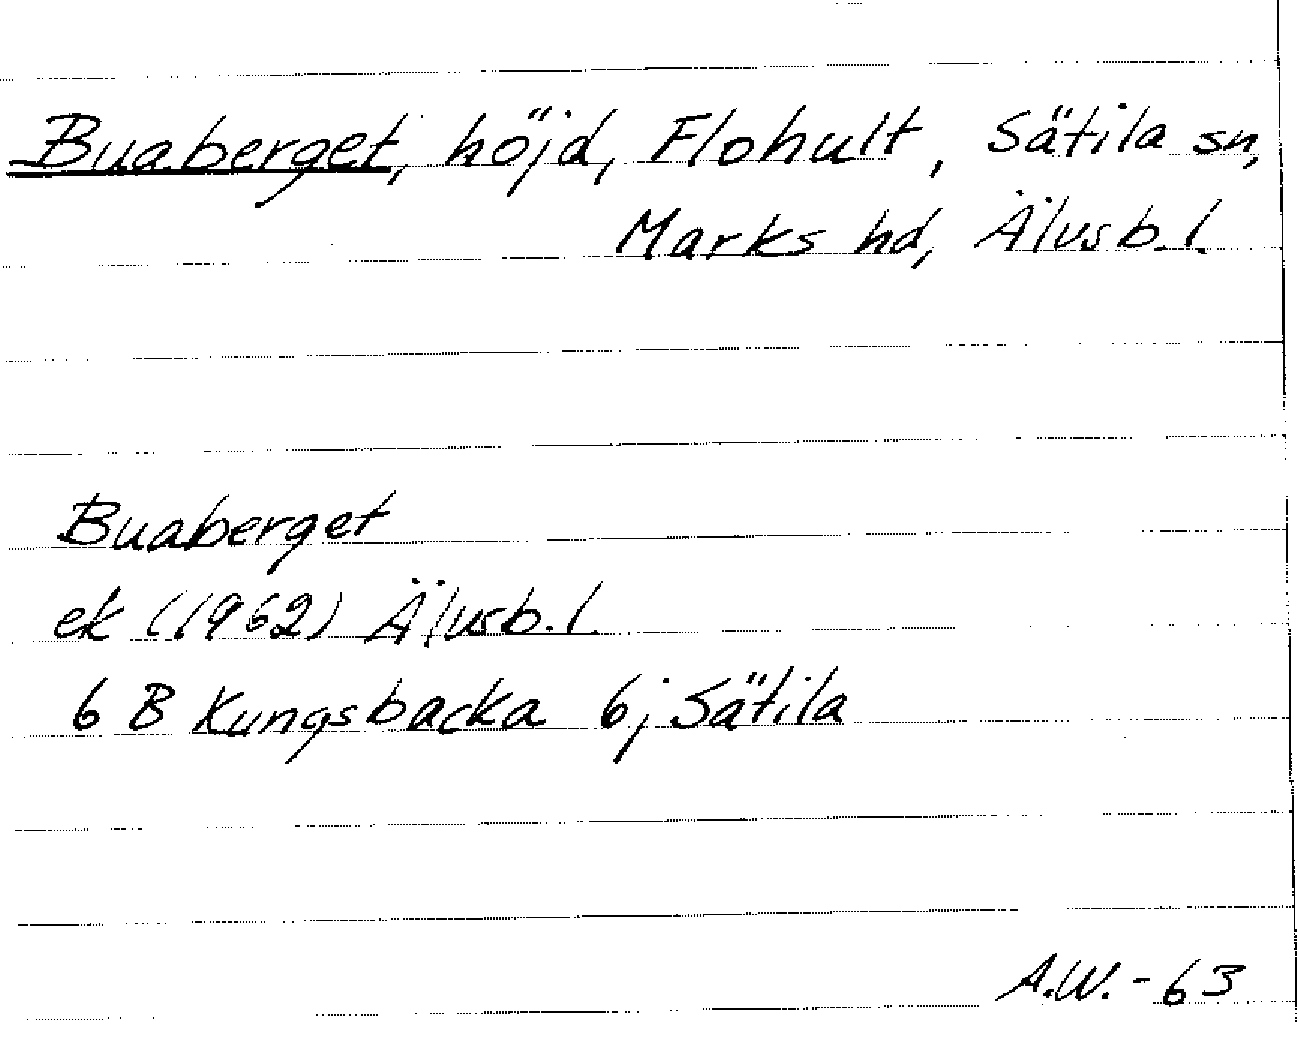 Buaberget, höjd, Flohult, Sätila sn,
Marks hd, Älvsb.l.
Buaberget
ek (1962) Älvsb.l.
6 B Kungsbacka 6j Sätila
A.W.-63